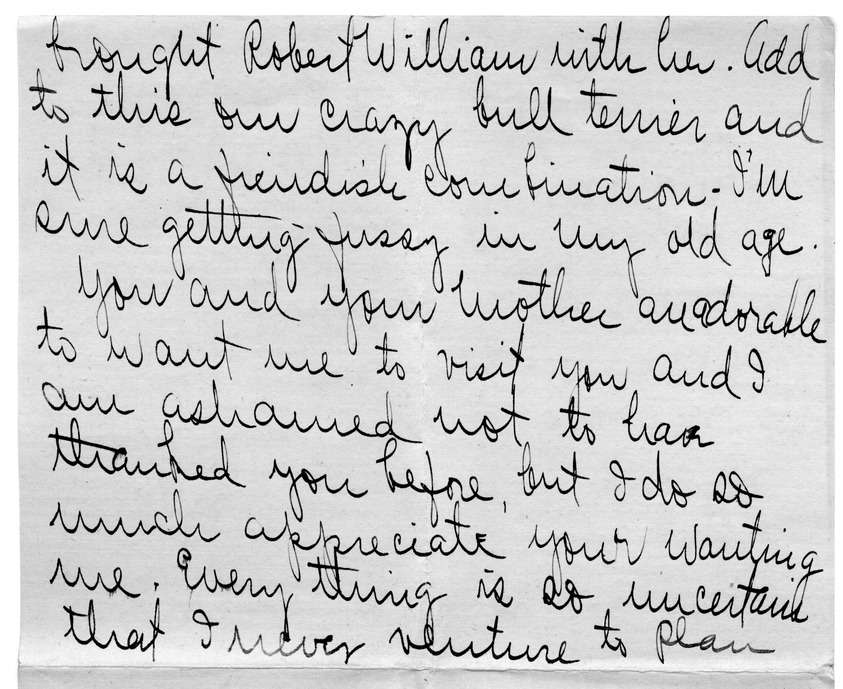 brought Robert William with her. Add
to this our crazy bull terrier and
it is a fiendish combination - I'm
sure getting fussy in my old age.
You and your mother are adorable
to want me to visit you and I
am ashamed not to have
thanked you before, but I do so
much appreciate your wanting
me. Every thing is so uncertain
that I never venture to plan